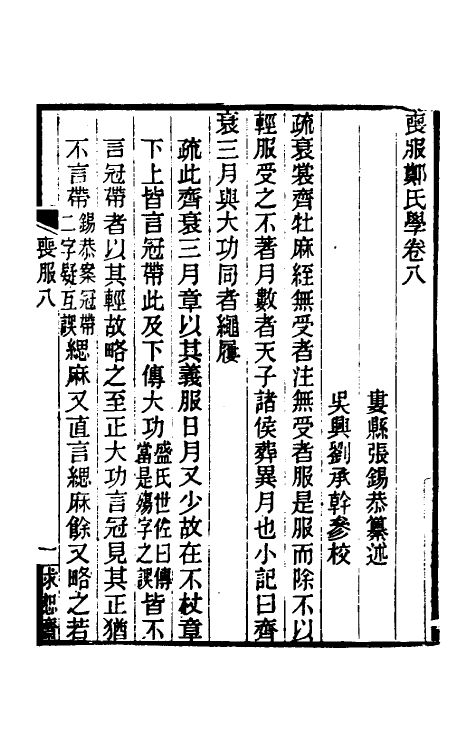 喪服鄭氏學卷八
婁縣張錫恭纂述
吳興劉承幹參校
疏衰裳齊牡麻絰無受者注無受者服是服而除不以
輕服受之不著月數者天子諸侯葬異月也小記曰齊
衰三月與大功同者繩屨
疏此齊衰三月章以其義服日月又少故在不杖章
下上皆言冠帶此及下傳大功盛氏世佐曰傳當是殤字之誤皆不
言冠帶者以其輕故略之至正大功言冠見其正猶
不言帶錫恭案冠帶二字疑互誤緦麻又直言緦麻餘又略之若
喪服八
一
求恕齋